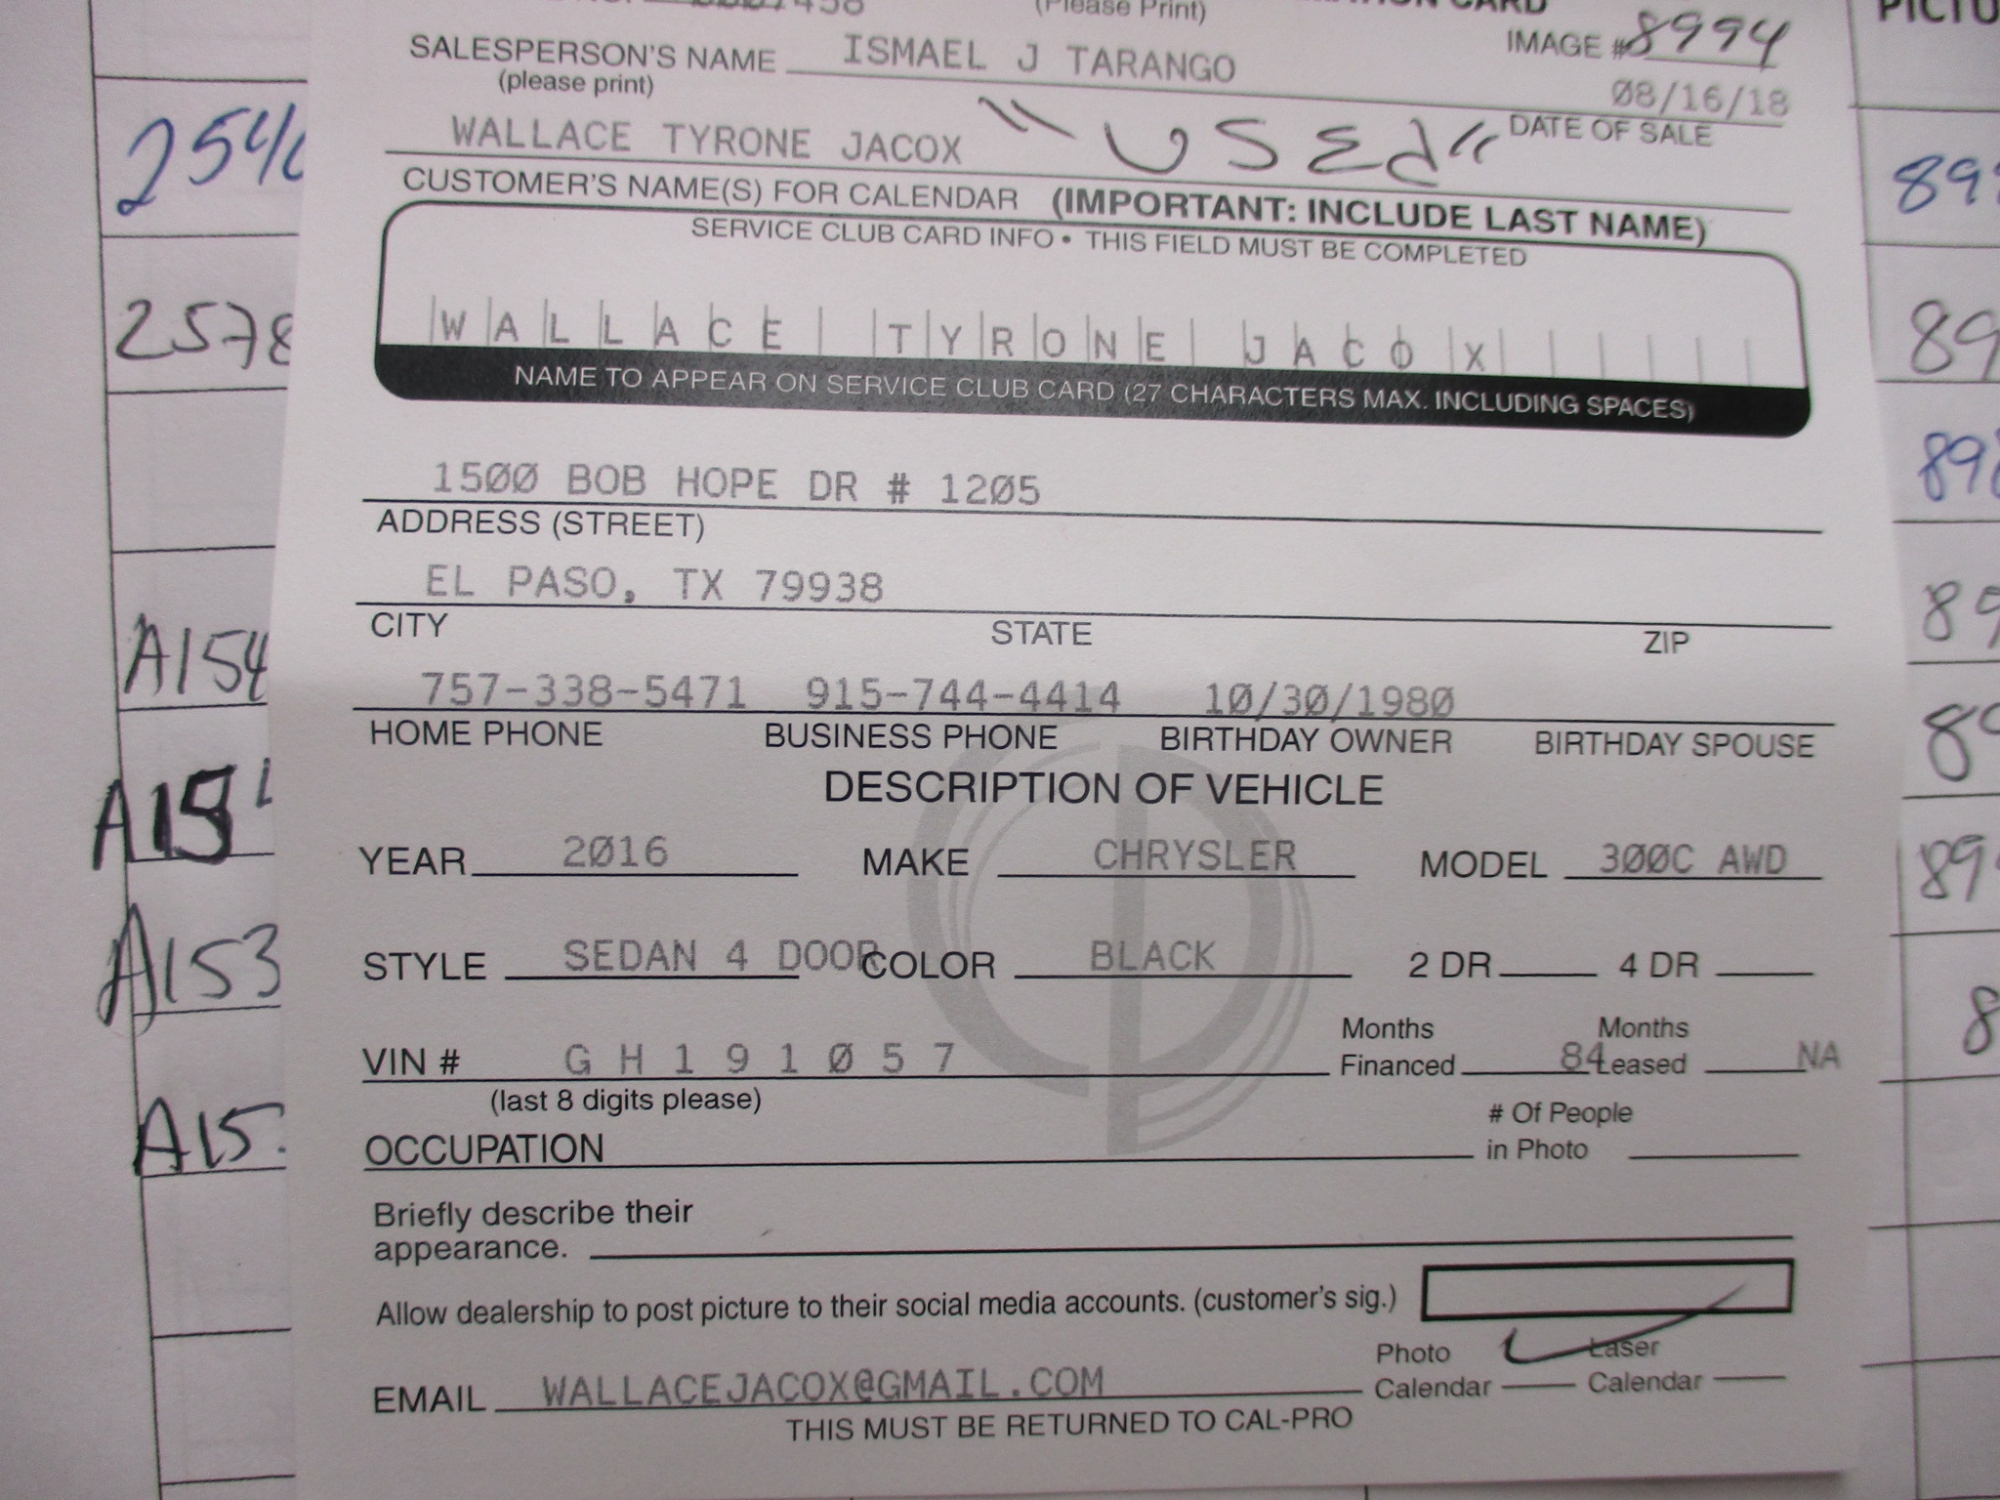 (Please Print)
CARD
PICTU
SALESPERSON'S NAME ISMAEL J TARANGO
(please print)
IMAGE # 8994
08/16/18
DATE OF SALE
WALLACE TYRONE JACOX "USEd"
CUSTOMER'S NAME(S) FOR CALENDAR (IMPORTANT: INCLUDE LAST NAME)
SERVICE CLUB CARD INFO • THIS FIELD MUST BE COMPLETED
WALLACE TYRONE JACOX
NAME TO APPEAR ON SERVICE CLUB CARD (27 CHARACTERS MAX. INCLUDING SPACES)
2578
1500 BOB HOPE DR # 1205
ADDRESS (STREET)
EL PASO, TX 79938
CITY STATE ZIP
A154
757-338-5471 915-744-4414 10/30/1980
HOME PHONE BUSINESS PHONE BIRTHDAY OWNER BIRTHDAY SPOUSE
DESCRIPTION OF VEHICLE
YEAR 2016 MAKE CHRYSLER MODEL 300C AWD
A153
STYLE SEDAN 4 DOOR COLOR BLACK 2 DR 4 DR
VIN # GH191057
(last 8 digits please)
Months Financed 84 Months Leased NA
OCCUPATION
# Of People
in Photo
Briefly describe their
appearance.
Allow dealership to post picture to their social media accounts. (customer's sig.)
EMAIL WALLACEJACOX@GMAIL.COM
Photo Calendar Laser Calendar
THIS MUST BE RETURNED TO CAL-PRO